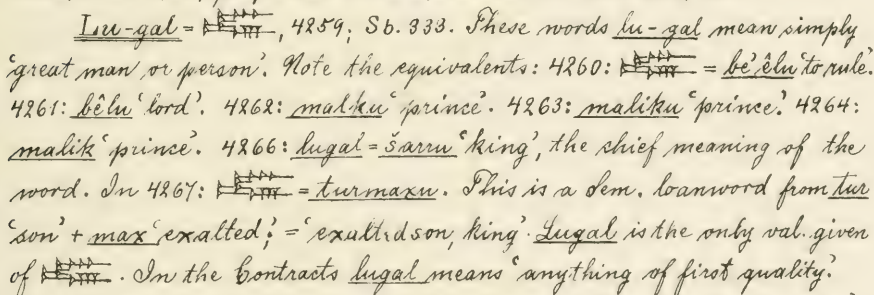 Lu-gal = 𒈗, 4259; Sb. 333. These words lu-gal mean simply
'great man or person'. Note the equivalents: 4260: 𒈗 = be'êlu 'to rule'.
4261: bêlu 'lord'. 4262: malku 'prince'. 4263: maliku 'prince'. 4264:
malik 'prince'. 4266: lugal = šarru 'king', the chief meaning of the
word. In 4267: 𒈗 = turmaxu. This is a Sem. loanword from tur
'son' + max 'exalted'; = 'exalted son, king'. Lugal is the only val. given
of 𒈗. In the Contracts lugal means 'anything of first quality'.